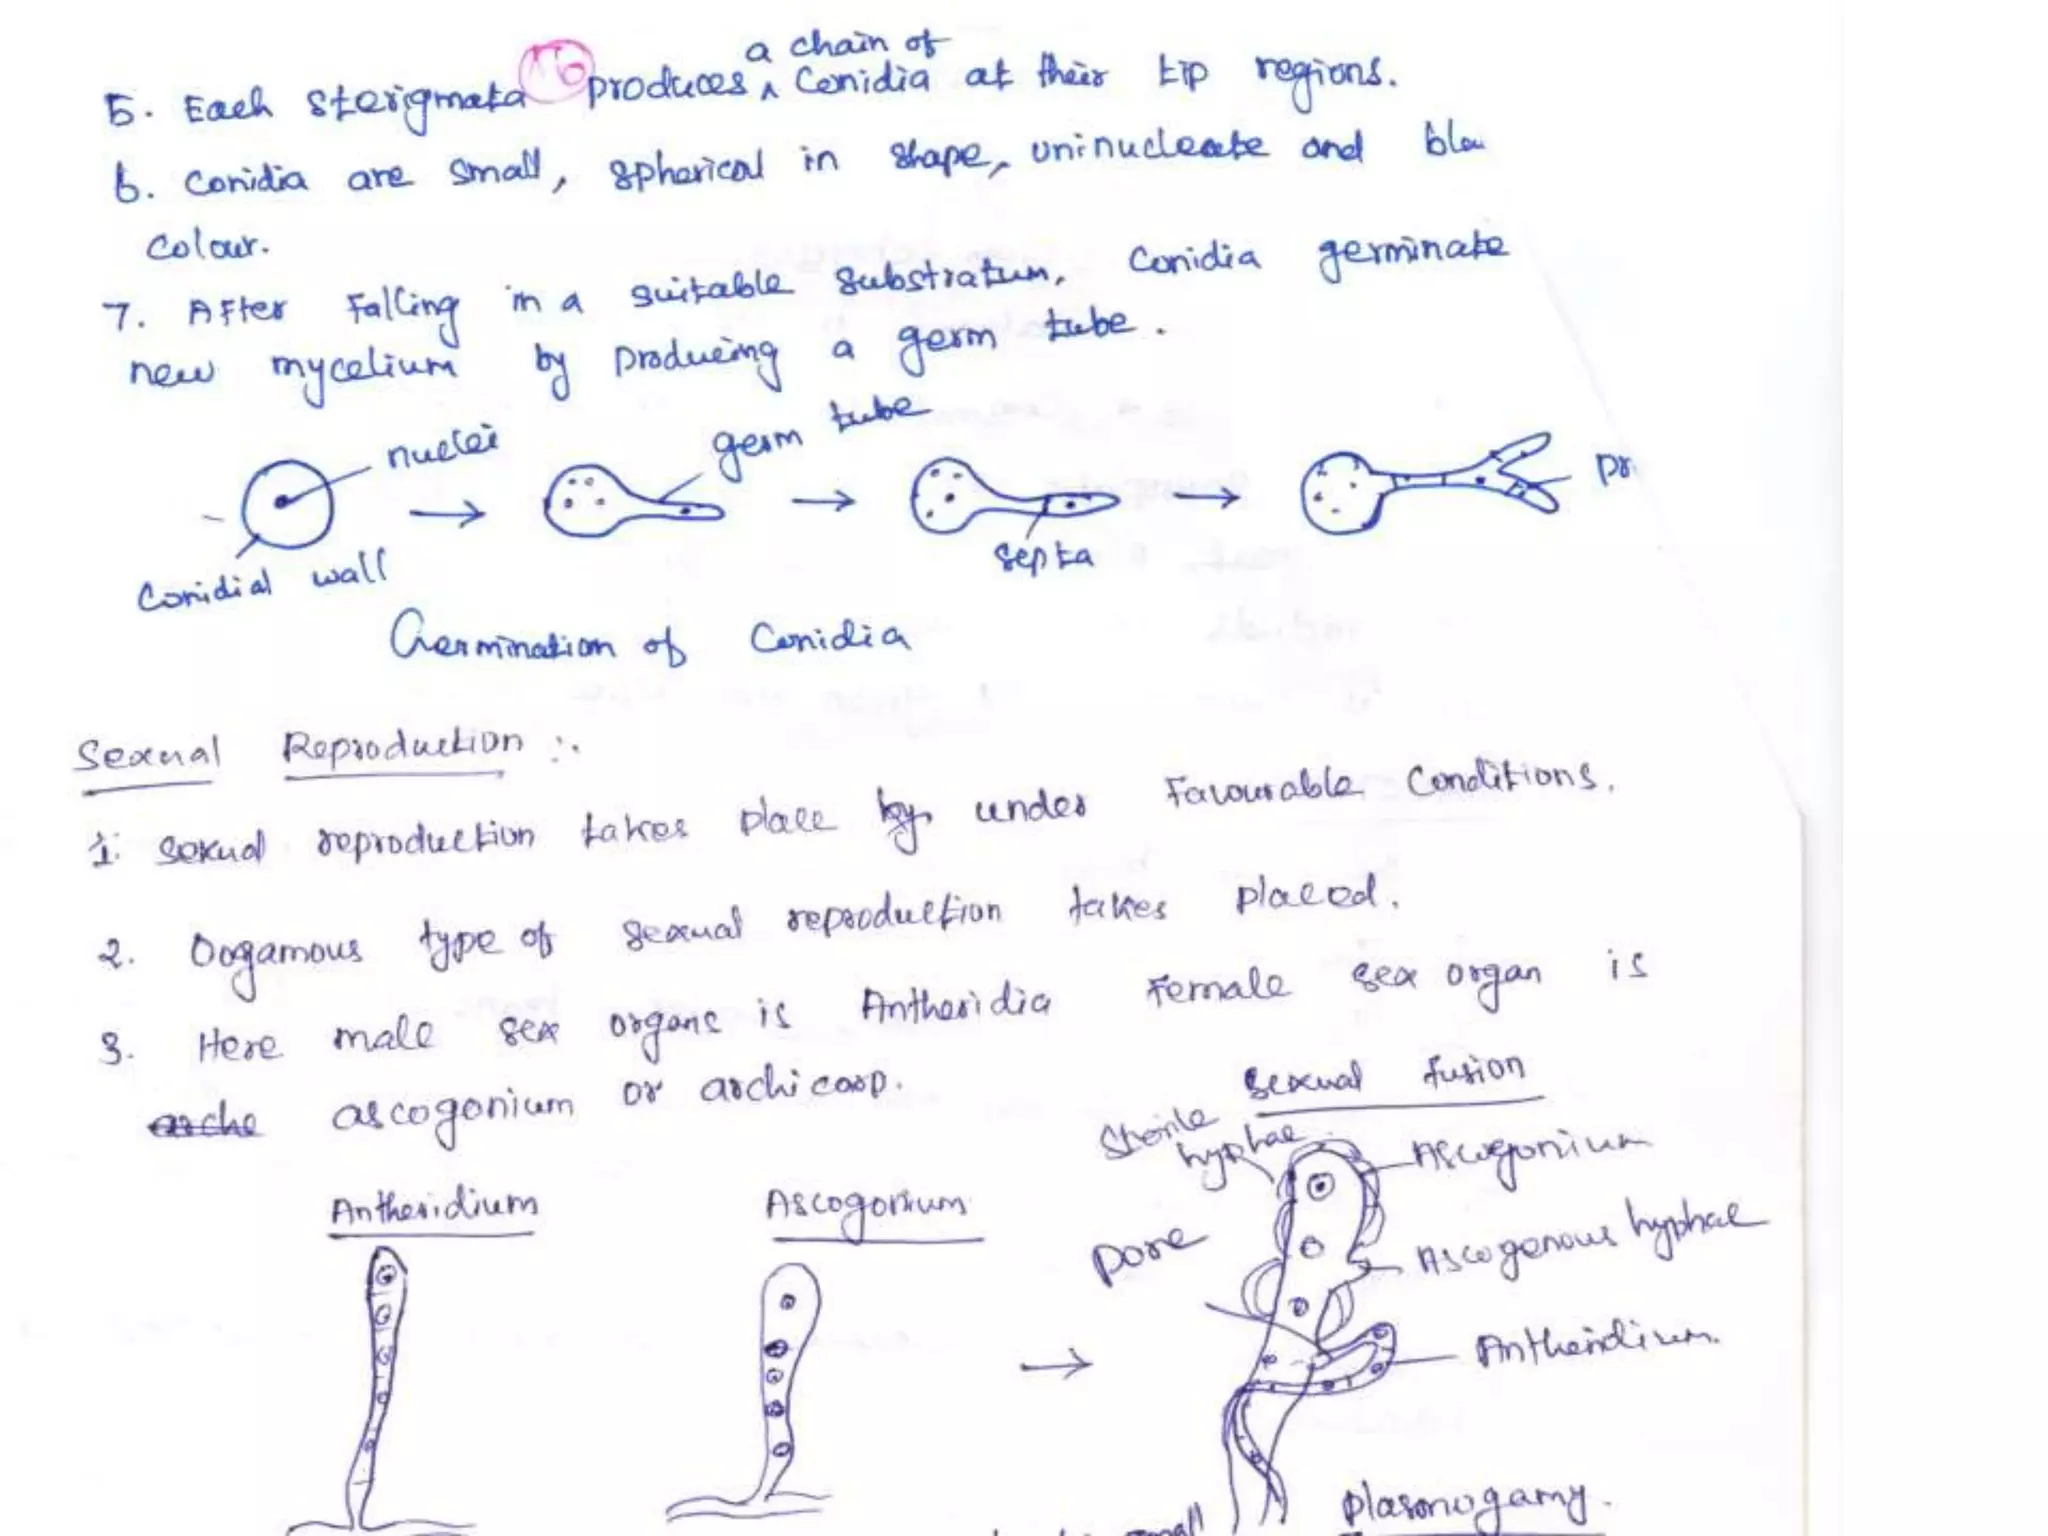 a chain of
5. Each sterigmata produces ^ Conidia at their tip regions.
6. Conidia are small, spherical in shape, uninucleate and
colour.
7. After Falling in a suitable substratum, Conidia germinate
new mycelium by producing a germ tube.
nuclei
germ tube
septa
Conidial wall
Germination of Conidia
Sexual Reproduction :.
1. Sexual reproduction takes place by under Favourable Conditions.
2. Oogamous type of sexual reproduction takes placed.
3. Here male sex organs is Antheridia Female sex organ is
arche ascogonium or archicarp.
sexual fusion
Sterile hyphae
Ascogonium
Antheridium
Ascogonium
Pore
Ascogenous hyphae
Antheridium.
small
Plasmogamy.